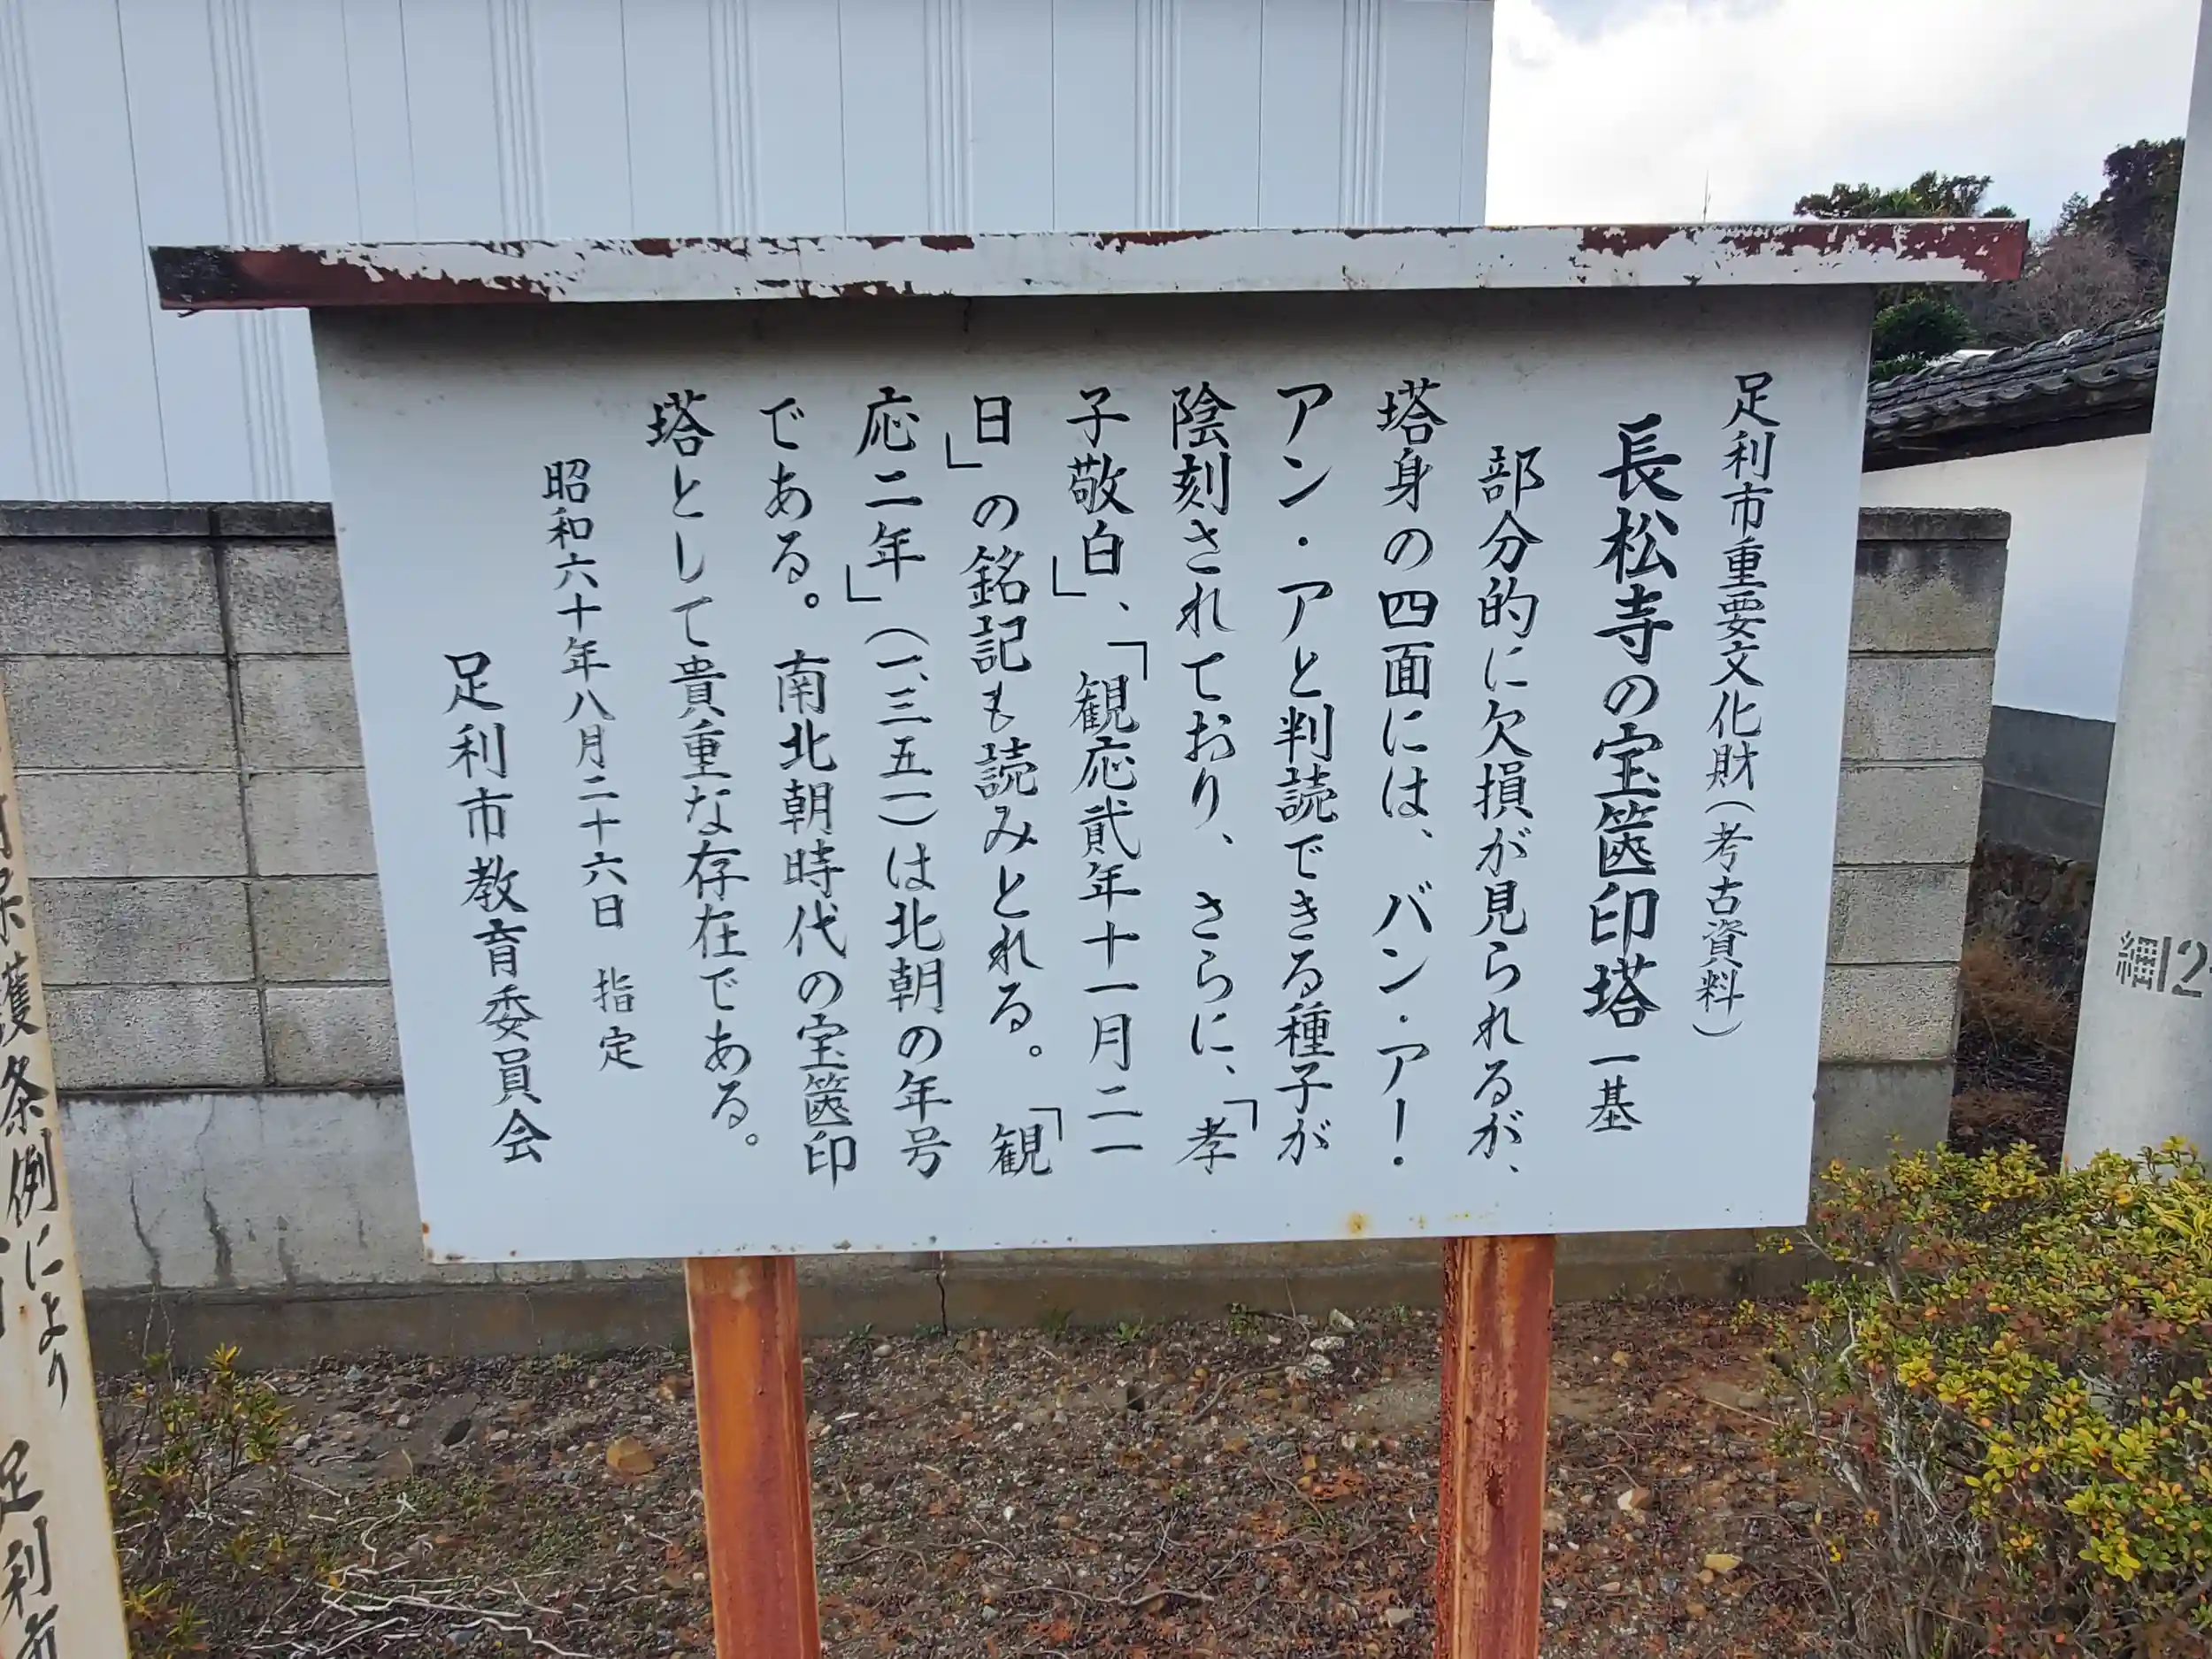 足利市重要文化財（考古資料）
長松寺の宝篋印塔 一基
部分的に欠損が見られるが、
塔身の四面には、バン・アー・
アン・アと判読できる種子が
陰刻されており、さらに、「孝
子敬白」、「観応貳年十一月二一
日」の銘記も読みとれる。「観
応二年」（一、三五一）は北朝の年号
である。南北朝時代の宝篋印
塔として貴重な存在である。
昭和六十年八月二十六日 指定
足利市教育委員会
護条例により 足利市